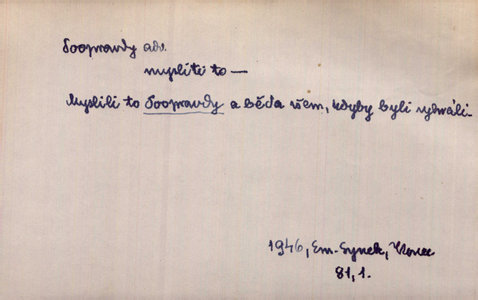 Doopravdy adv.
mysliti to —
Mysleli to Doopravdy a běda všem, kdyby byli vyhráli.
1946, Em. Synek, Konec
81, 1.